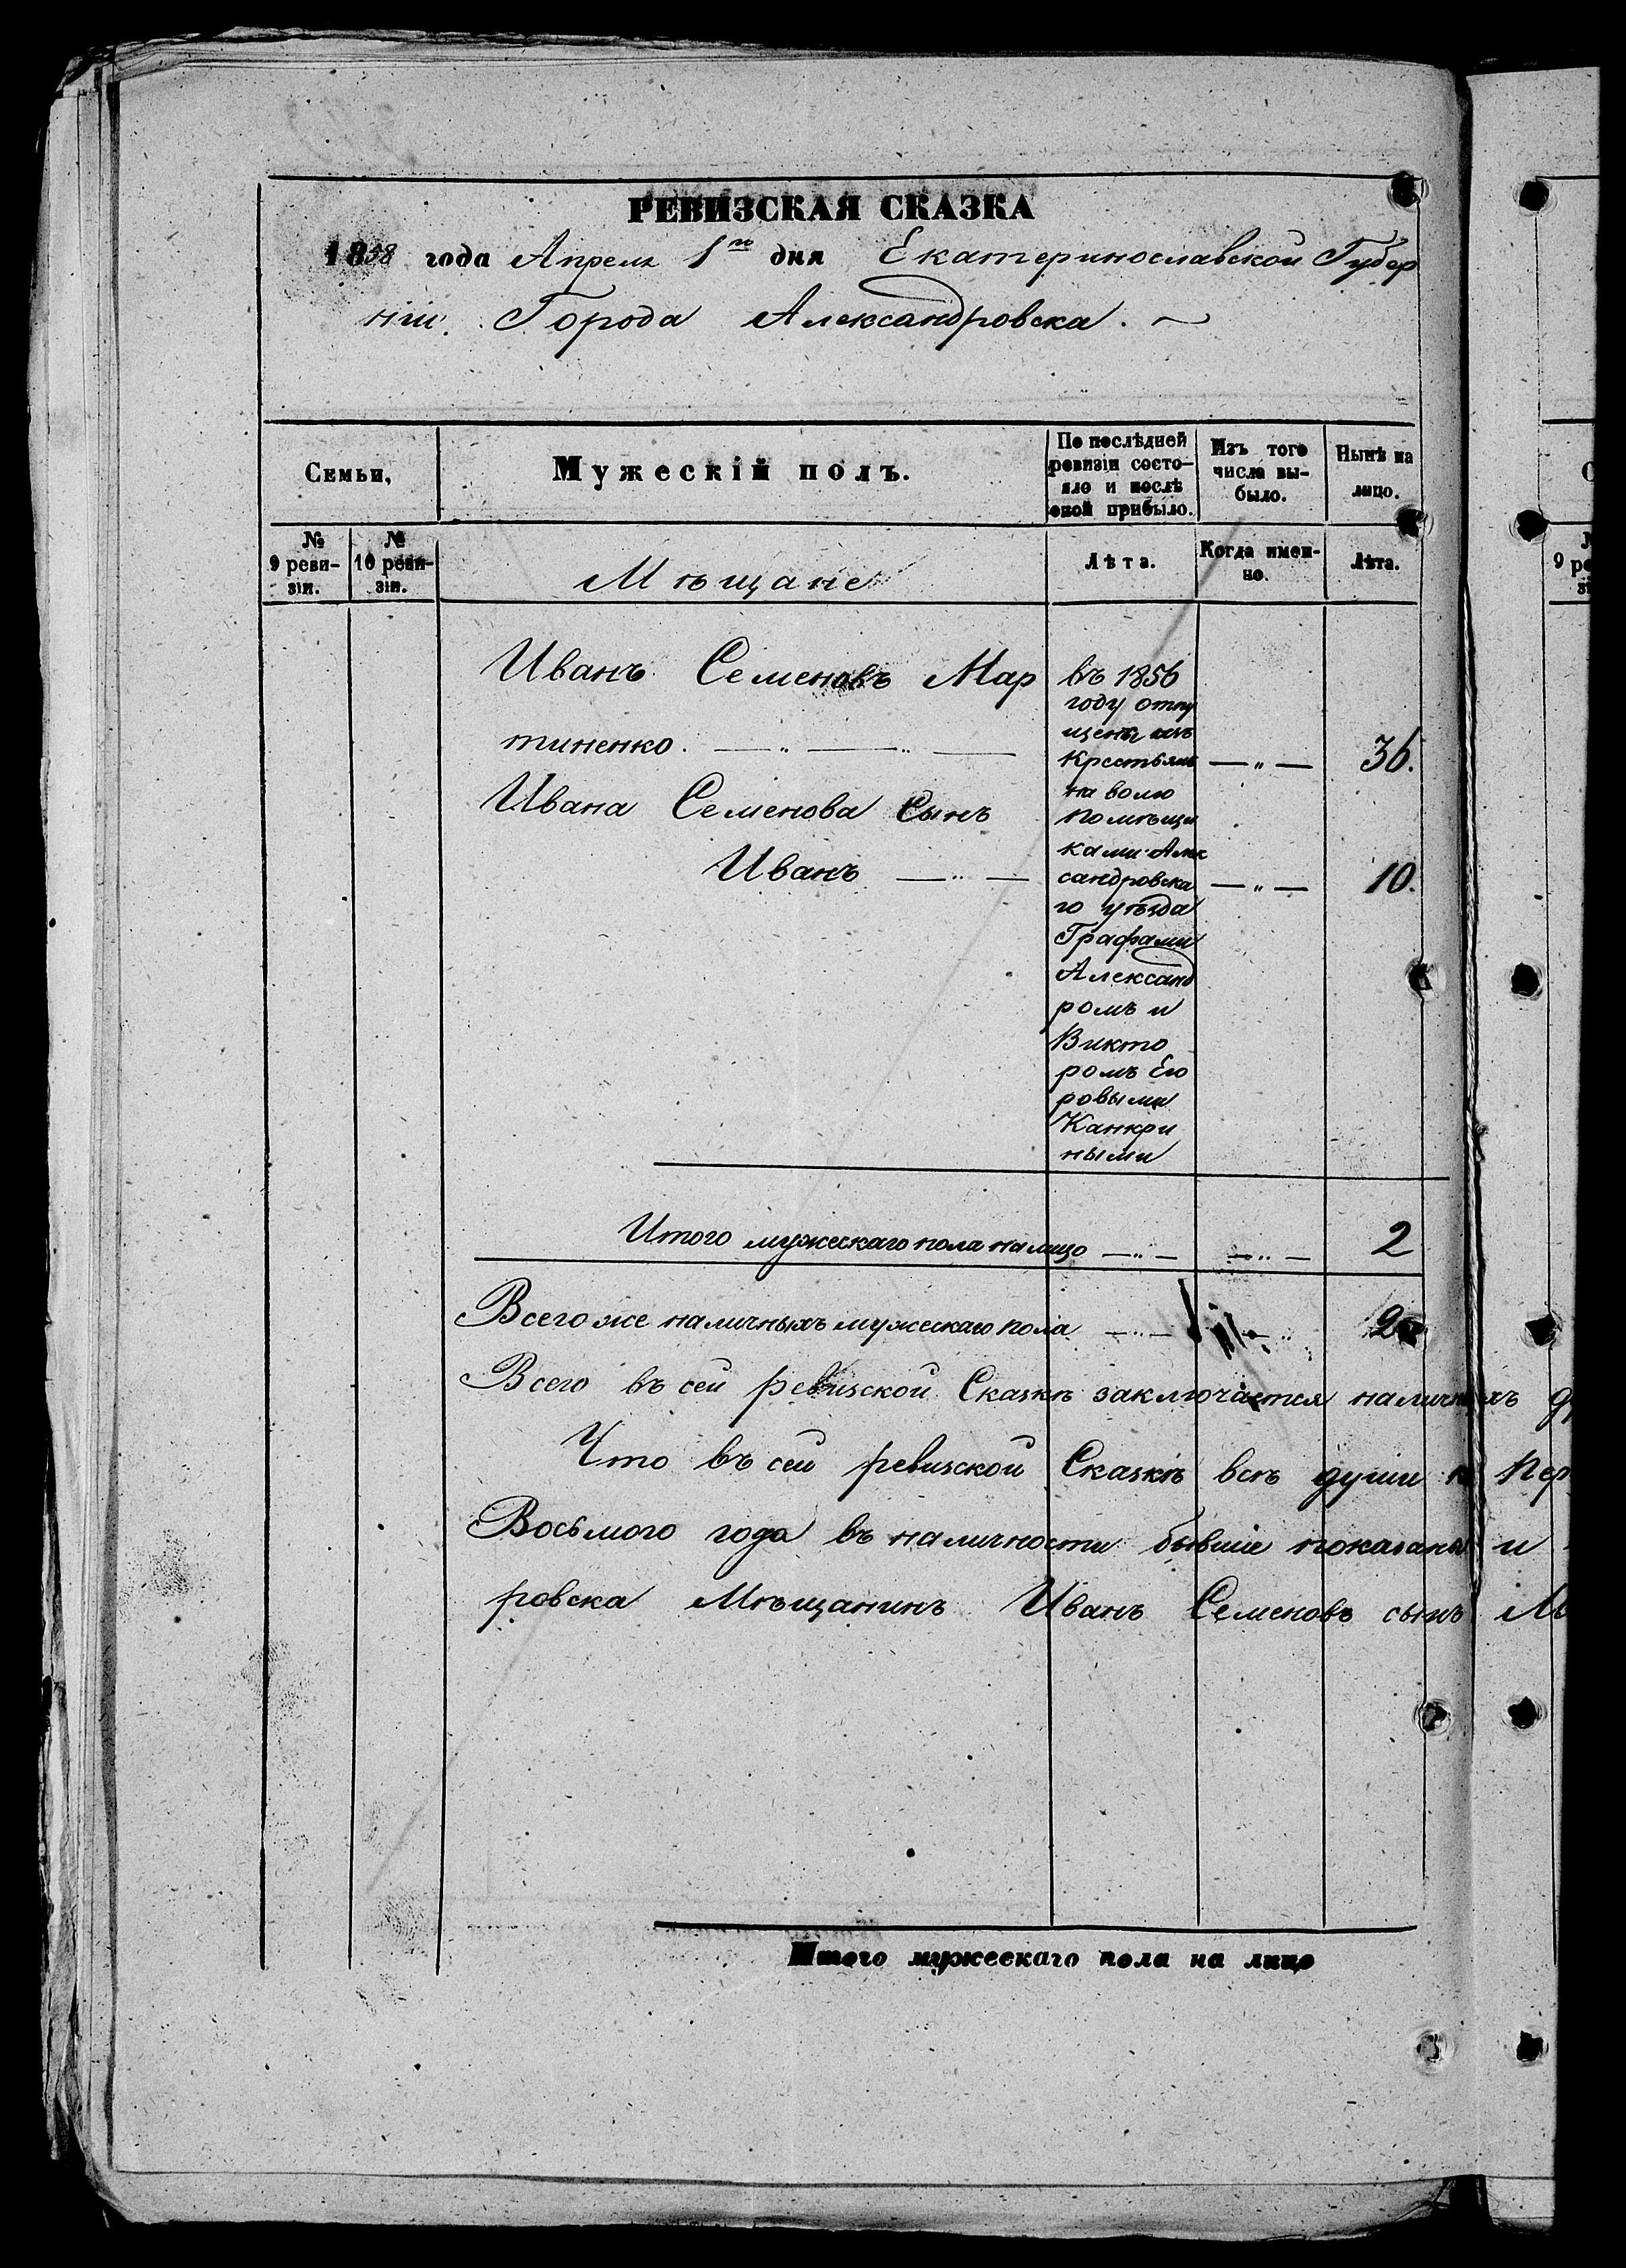 РЕВИЗСКАЯ СКАЗКА
1858 года Апреля 1го дня Екатеринославской Губер
ніи. Города Александровска.
Семьи,
Мужескій полъ.
По послѣдней ревизіи состояло и послѣ оной прибыло.
Изъ того числа выбыло.
Нынѣ на лицо.
№ 9 ревизіи.
№ 10 ревизіи.
Мѣщане
Лѣта.
Когда именно.
Лѣта.
Иванъ Семеновъ Мар
тиненко. — „ — „ — — „ — 36.
Ивана Семенова сынъ
Иванъ — „ — — „ — 10.
въ 1856
году отпу
щены изъ
крестьянъ
на волю
помѣщи
ками Алек
сандровска
го уѣзда
Графами
Александ
ромъ и
Викто
ромъ Его
ровыми
Канкри
ными
Итого мужескаго пола налицо — „ — — „ — 2
Всего же наличныхъ мужескаго пола — „ — 2
Всего въ сей ревизской Сказкѣ заключается наличныхъ
Что въ сей ревизской Сказкѣ всѣ души к Пер
Восьмого года въ наличности бывшіе показаны и
ровска Мѣщанинъ Иванъ Семеновъ сынъ М
Итого мужескаго пола на лицо
9 ре